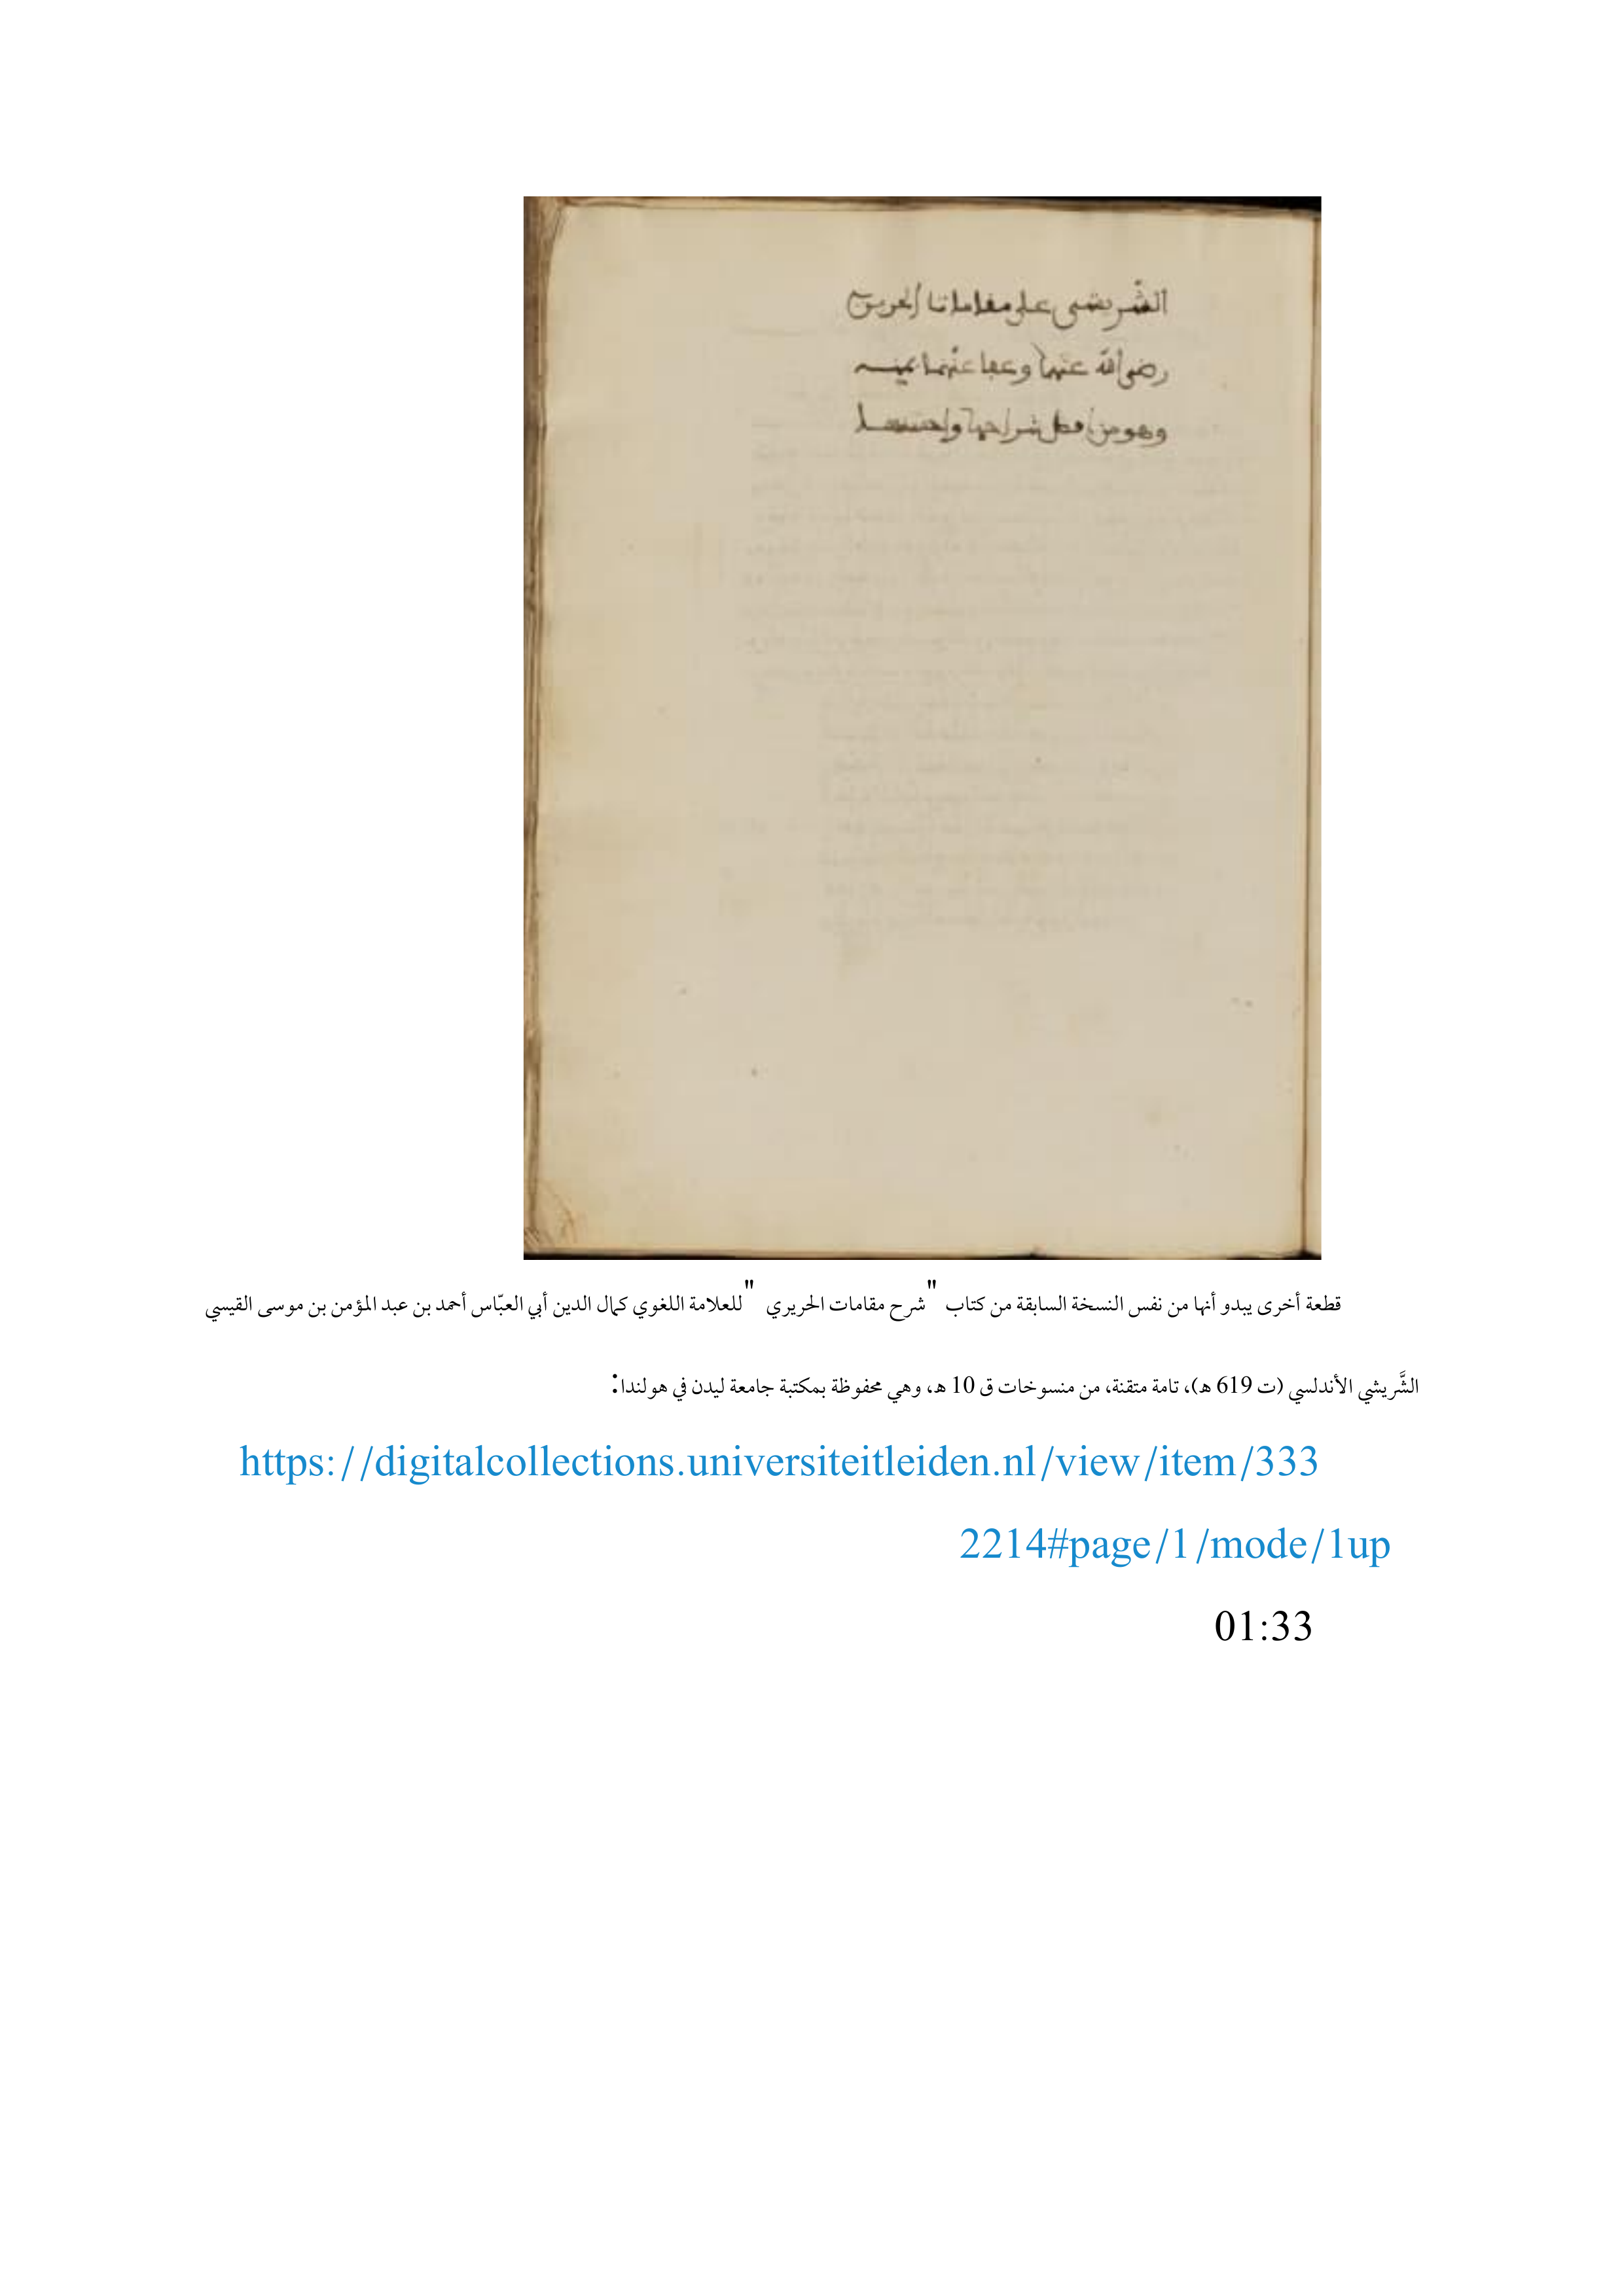 الشريشي على مقامات الحريري
رضي الله عنهما وعفا عنهما بمنه
وهو من افضل شراحها واحسنها
قطعة أخرى يبدو أنها من نفس النسخة السابقة من كتاب "شرح مقامات الحريري "للعلامة اللغوي كمال الدين أبي العبّاس أحمد بن عبد المؤمن بن موسى القيسي
الشَّريشي الأندلسي (ت 619 هـ)، تامة متقنة، من منسوخات ق 10 هـ، وهي محفوظة بمكتبة جامعة ليدن في هولندا:
https://digitalcollections.universiteitleiden.nl/view/item/333
2214#page/1/mode/1up
01:33